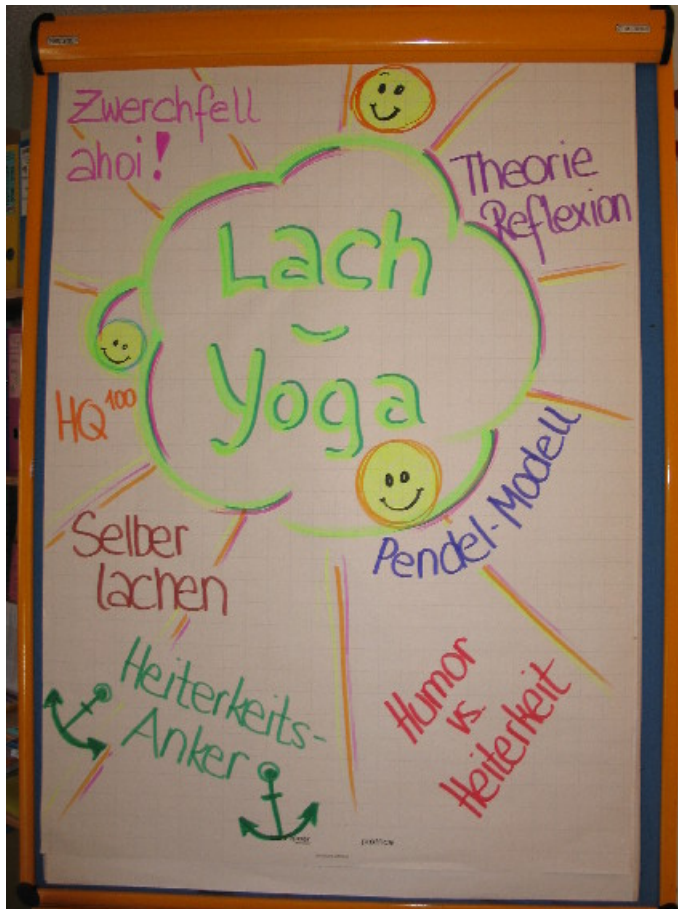 Zwerchfell
ahoi!
Theorie
Reflexion
Lach
Yoga
HQ 100
Pendel-Modell
Selber
lachen
Heiterkeits-
Anker
Humor
vs.
Heiterkeit